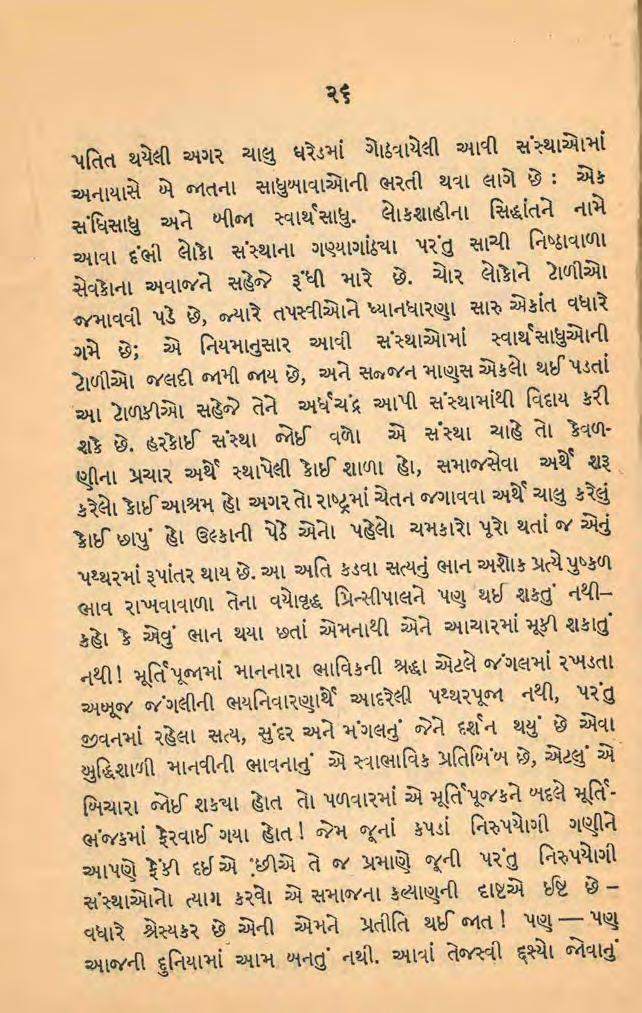 ૨૬
પતિત થયેલી અગર ચાલુ ઘરેડમાં ગોઠવાયેલી આવી સંસ્થાઓમાં
અનાયાસે બે જાતના સાધુબાવાઓની ભરતી થવા લાગે છે : એક
સંધિસાધુ અને બીજા સ્વાર્થસાધુ. લોકશાહીના સિદ્ધાંતને નામે
આવા દંભી લોકો સંસ્થાના ગણ્યાગાંઠ્યા પરંતુ સાચી નિષ્ઠાવાળા
સેવકોના અવાજને સહેજે રૂંધી મારે છે. ચોર લોકોને ટોળીઓ
જમાવવી પડે છે, જ્યારે તપસ્વીઓને ધ્યાનધારણા સારુ એકાંત વધારે
ગમે છે; એ નિયમાનુસાર આવી સંસ્થાઓમાં સ્વાર્થસાધુઓની
ટોળીઓ જલદી જામી જાય છે, અને સજ્જન માણસ એકલો થઈ પડતાં
આ ટોળકીઓ સહેજે તેને અર્ધચંદ્ર આપી સંસ્થામાંથી વિદાય કરી
શકે છે. હરકોઈ સંસ્થા જોઈ વળો એ સંસ્થા ચાહે તો કેવળ-
ણીના પ્રચાર અર્થે સ્થાપેલી કોઈ શાળા હો, સમાજસેવા અર્થે શરૂ
કરેલો કોઈ આશ્રમ હો અગર તો રાષ્ટ્રમાં ચેતન જગાવવા અર્થે ચાલુ કરેલું
કોઈ છાપું હો ઉલ્કાની પેઠે એનો પહેલો ચમકારો પૂરો થતાં જ એનું
પથ્થરમાં રૂપાંતર થાય છે. આ અતિ કડવા સત્યનું ભાન અશોક પ્રત્યે પુષ્કળ
ભાવ રાખવાવાળા તેના વયોવૃદ્ધ પ્રિન્સીપાલને પણ થઈ શકતું નથી–
કહો કે એવું ભાન થયા છતાં એમનાથી એને આચારમાં મૂકી શકાતું
નથી! મૂર્તિપૂજામાં માનનારા ભાવિકની શ્રદ્ધા એટલે જંગલમાં રખડતા
અબૂજ જંગલીની ભયનિવારણાર્થે આદરેલી પથ્થરપૂજા નથી, પરંતુ
જીવનમાં રહેલા સત્ય, સુંદર અને મંગલનું જેને દર્શન થયું છે એવા
બુદ્ધિશાળી માનવીની ભાવનાનું એ સ્વાભાવિક પ્રતિબિંબ છે, એટલું એ
બિચારા જોઈ શકયા હોત તો પળવારમાં એ મૂર્તિપૂજકને બદલે મૂર્તિ-
ભંજકમાં ફેરવાઈ ગયા હોત! જેમ જૂનાં કપડાં નિરુપયોગી ગણીને
આપણે ફેંકી દઈએ છીએ તે જ પ્રમાણે જૂની પરંતુ નિરુપયોગી
સંસ્થાઓનો ત્યાગ કરવો એ સમાજના કલ્યાણની દૃષ્ટિએ ઈષ્ટ છે –
વધારે શ્રેસ્યકર છે એની એમને પ્રતીતિ થઈ જાત! પણ — પણ
આજની દુનિયામાં આમ બનતું નથી. આવાં તેજસ્વી દ્દશ્યો જોવાનું